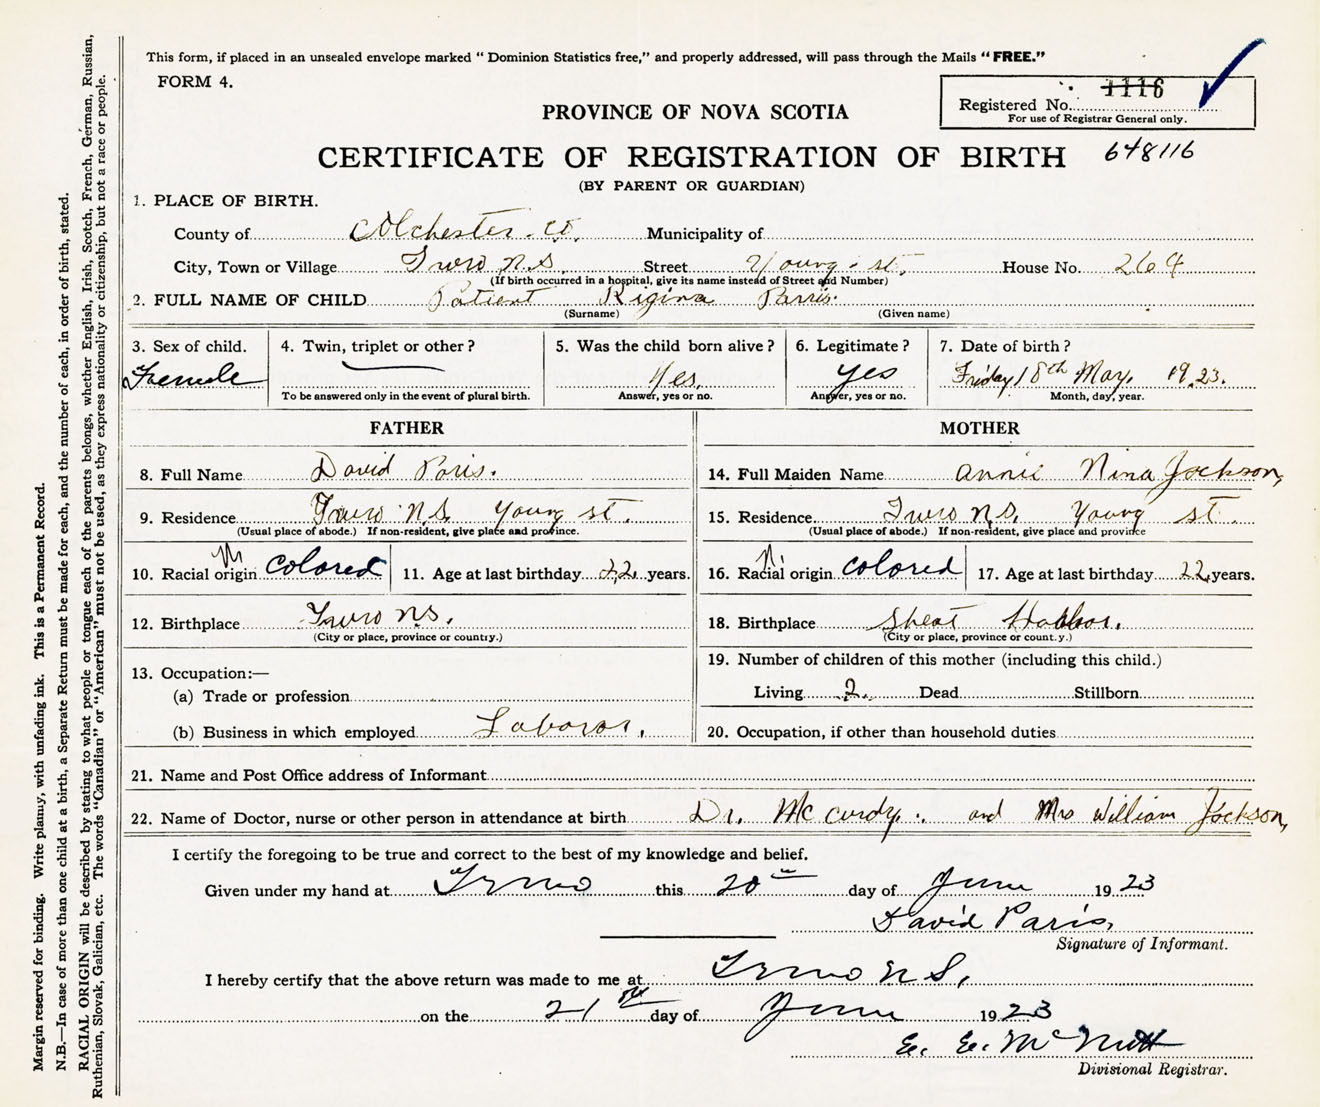 This form, if placed in an unsealed envelope marked "Dominion Statistics free," and properly addressed, will pass through the Mails "FREE."
FORM 4.
1116
Registered No.
For use of Registrar General only.
PROVINCE OF NOVA SCOTIA
CERTIFICATE OF REGISTRATION OF BIRTH 648116
(BY PARENT OR GUARDIAN)
1. PLACE OF BIRTH.
County of Colchester. Co. Municipality of
City, Town or Village Truro N.S. Street Young. st. House No. 264
(If birth occurred in a hospital, give its name instead of Street and Number)
2. FULL NAME OF CHILD Patient Rigina Parris.
(Surname) (Given name)
3. Sex of child. 4. Twin, triplet or other? 5. Was the child born alive? 6. Legitimate? 7. Date of birth?
Female Yes. yes Friday 18th May. 1923.
To be answered only in the event of plural birth. Answer, yes or no. Answer, yes or no. Month, day, year.
FATHER MOTHER
8. Full Name David Paris. 14. Full Maiden Name annie Nina Jackson,
9. Residence Truro N.S. Young st. 15. Residence Truro N.S. Young st.
(Usual place of abode.) If non-resident, give place and province. (Usual place of abode.) If non-resident, give place and province
10. Racial origin colored 11. Age at last birthday 22 years. 16. Racial origin colored 17. Age at last birthday 22 years.
12. Birthplace Truro N.S. 18. Birthplace Sheat Habbor.
(City or place, province or country.) (City or place, province or count.y.)
19. Number of children of this mother (including this child.)
13. Occupation:—
(a) Trade or profession Living 2. Dead Stillborn
(b) Business in which employed Laboror. 20. Occupation, if other than household duties
21. Name and Post Office address of Informant
22. Name of Doctor, nurse or other person in attendance at birth Dr. McCurdy. and Mrs William Jackson,
I certify the foregoing to be true and correct to the best of my knowledge and belief.
Given under my hand at Truro this 20th day of June 1923
David Paris,
Signature of Informant.
I hereby certify that the above return was made to me at Truro N S,
on the 21st day of June 1923
E. E. McNutt
Divisional Registrar.
Margin reserved for binding. Write plainly, with unfading ink. This is a Permanent Record.
N.B.—In case of more than one child at a birth, a Separate Return must be made for each, and the number of each, in order of birth, stated.
RACIAL ORIGIN will be described by stating to what people or tongue each of the parents belongs, whether English, Irish, Scotch, French, German, Russian,
Ruthenian, Slovak, Galician, etc. The words "Canadian" or "American" must not be used, as they express nationality or citizenship, but not a race or people.